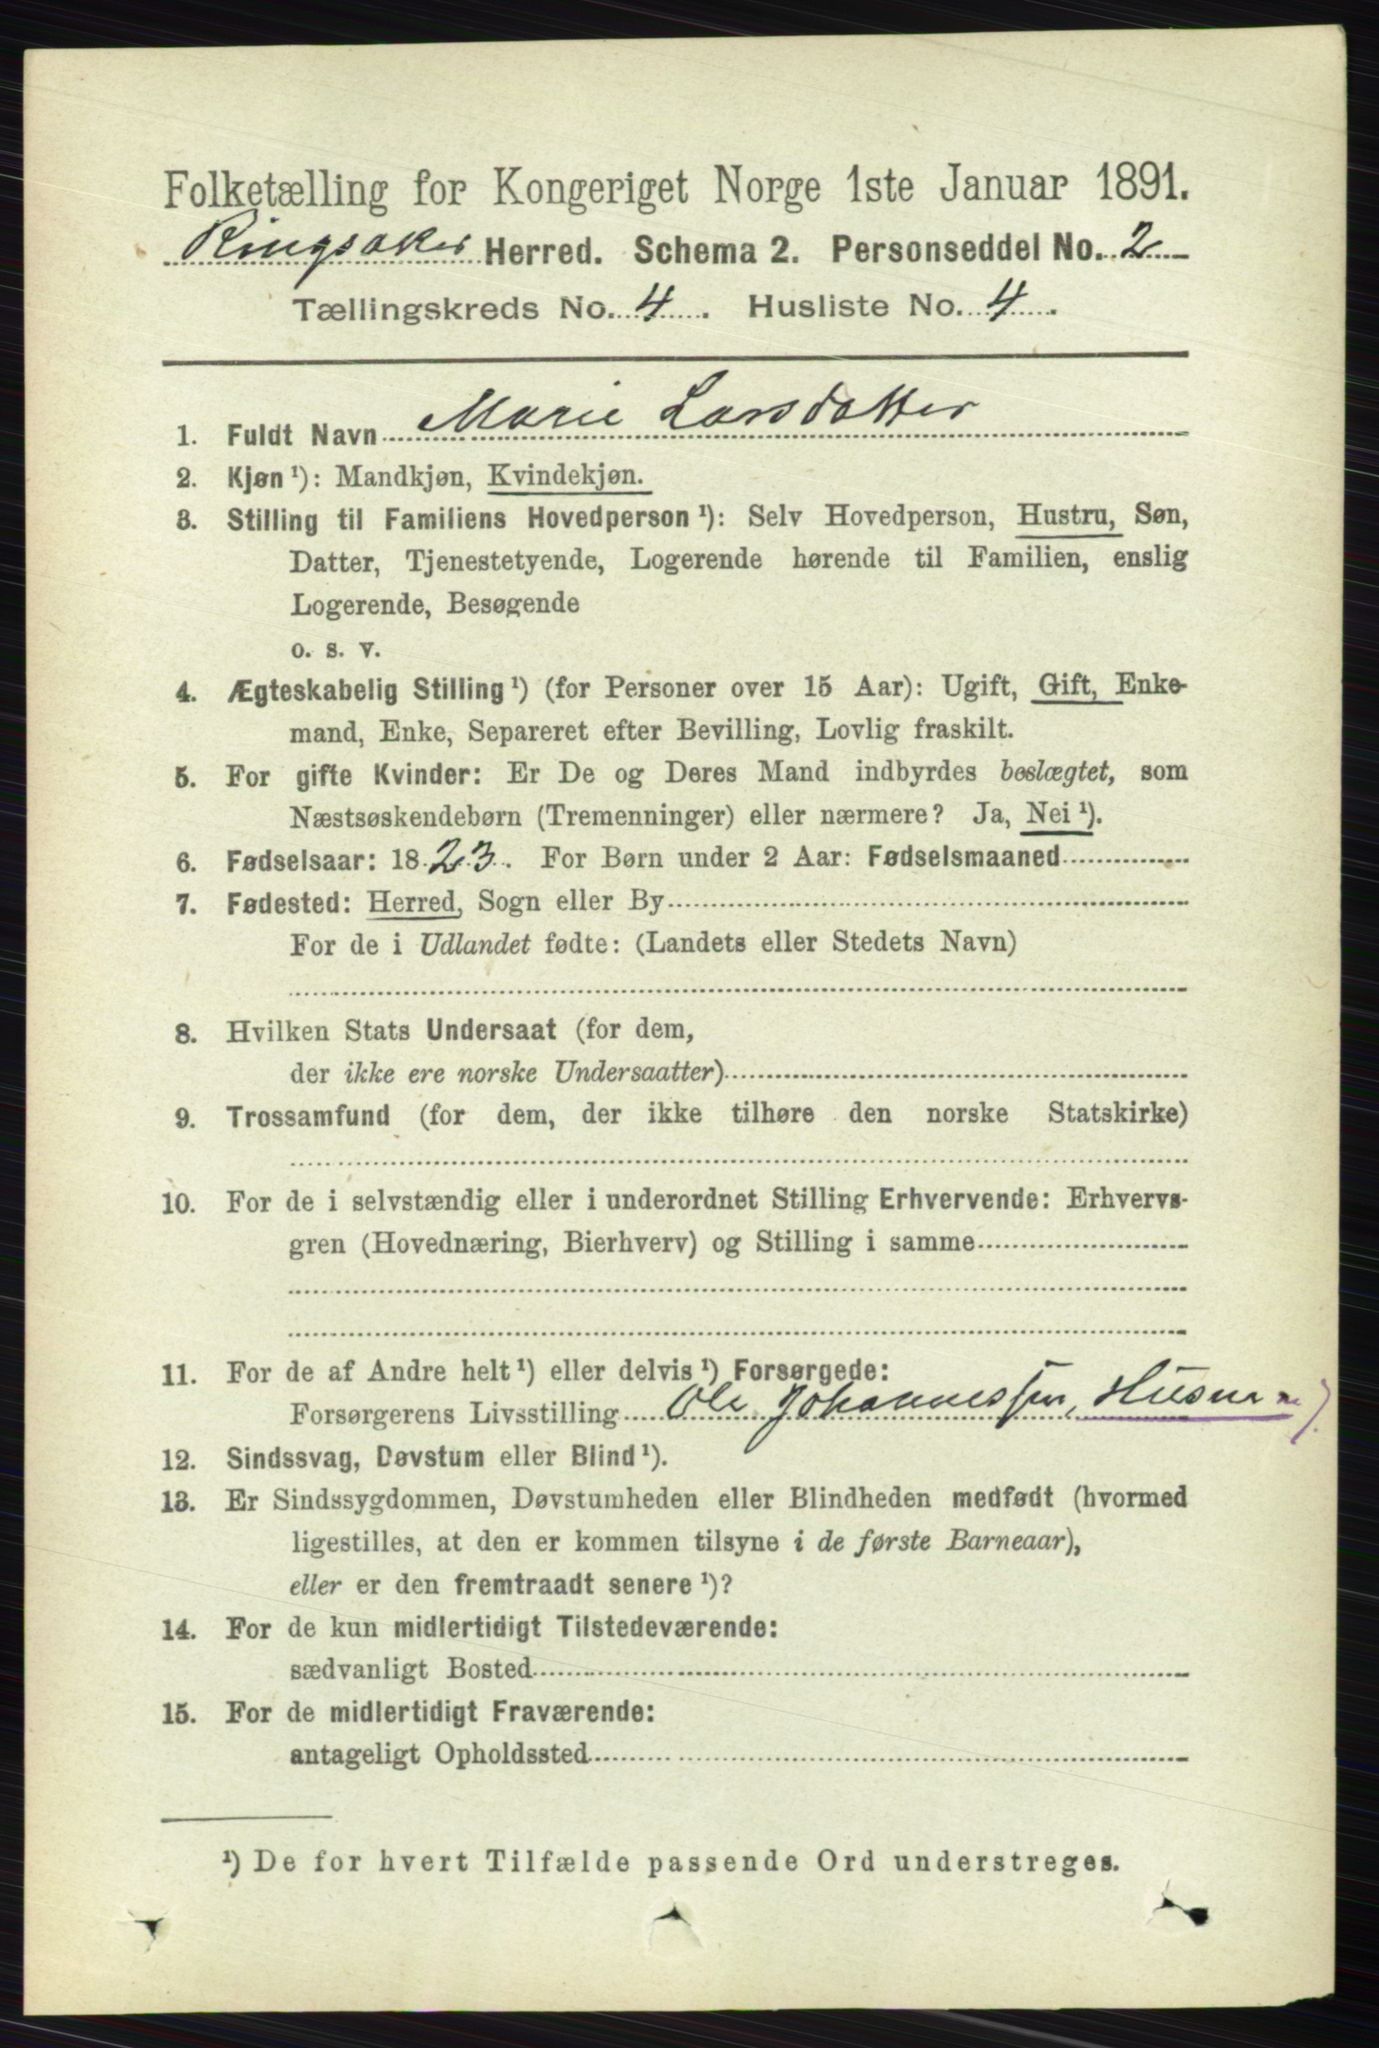 Folketælling for Kongeriget Norge 1ste Januar 1891.
Ringsaker Herred. Schema 2. Personseddel No. 2
Tællingskreds No. 4. Husliste No. 4.
1. Fuldt Navn Marie Larsdatter
2. Kjøn ¹): Mandkjøn, Kvindekjøn.
3. Stilling til Familiens Hovedperson ¹): Selv Hovedperson, Hustru, Søn,
Datter, Tjenestetyende, Logerende hørende til Familien, enslig
Logerende, Besøgende
o. s. v.
4. Ægteskabelig Stilling ¹) (for Personer over 15 Aar): Ugift, Gift, Enke-
mand, Enke, Separeret efter Bevilling, Lovlig fraskilt.
5. For gifte Kvinder: Er De og Deres Mand indbyrdes beslægtet, som
Næstsøskendebørn (Tremenninger) eller nærmere? Ja, Nei ¹).
6. Fødselsaar: 1823. For Børn under 2 Aar: Fødselsmaaned
7. Fødested: Herred, Sogn eller By
For de i Udlandet fødte: (Landets eller Stedets Navn)
8. Hvilken Stats Undersaat (for dem,
der ikke ere norske Undersaatter)
9. Trossamfund (for dem, der ikke tilhøre den norske Statskirke)
10. For de i selvstændig eller i underordnet Stilling Erhvervende: Erhvervs-
gren (Hovednæring, Bierhverv) og Stilling i samme
11. For de af Andre helt ¹) eller delvis ¹) Forsørgede:
Forsørgerens Livsstilling Ole Johannessen, Husmn).
12. Sindssvag, Døvstum eller Blind ¹).
13. Er Sindssygdommen, Døvstumheden eller Blindheden medfødt (hvormed
ligestilles, at den er kommen tilsyne i de første Barneaar),
eller er den fremtraadt senere ¹)?
14. For de kun midlertidigt Tilstedeværende:
sædvanligt Bosted
15. For de midlertidigt Fraværende:
antageligt Opholdssted
¹) De for hvert Tilfælde passende Ord understreges.